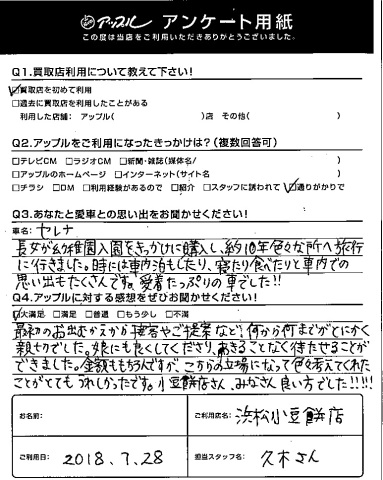 アップル アンケート用紙
この度は当店をご利用いただきありがとうございました。
Q1.買取店利用について教えて下さい!
☑買取店を初めて利用
□過去に買取店を利用したことがある
利用した店舗: アップル( )店 その他( )
Q2.アップルをご利用になったきっかけは?(複数回答可)
□テレビCM □ラジオCM □新聞・雑誌(媒体名/ )
□アップルのホームページ □インターネット(サイト名 )
□チラシ □DM □利用経験があるので □紹介 □スタッフに誘われて ☑通りがかりで
Q3.あなたと愛車との思い出をお聞かせください!
車名: セレナ
長女が幼稚園入園をきっかけに購入し、約10年色々な所へ旅行
に行きました。時には車内泊もしたり、寝たり食べたりと車内での
思い出もたくさんです。愛着たっぷりの車でした!!
Q4.アップルに対する感想をぜひお聞かせください!
☑大満足 □満足 □普通 □もう少し □不満
最初のお出むかえから接客やご提案など、何から何までがとにかく
親切でした。娘にも良くしてくださり、あきることなく待たせることが
できました。金額ももちろんですが、こちらの立場になって色々考えてくれた
ことがとてもうれしかったです。小豆餅店さん、みなさん良い方でした!!!!
お名前:
ご利用店名: 浜松小豆餅店
ご利用日: 2018.7.28
担当スタッフ名: 久木さん